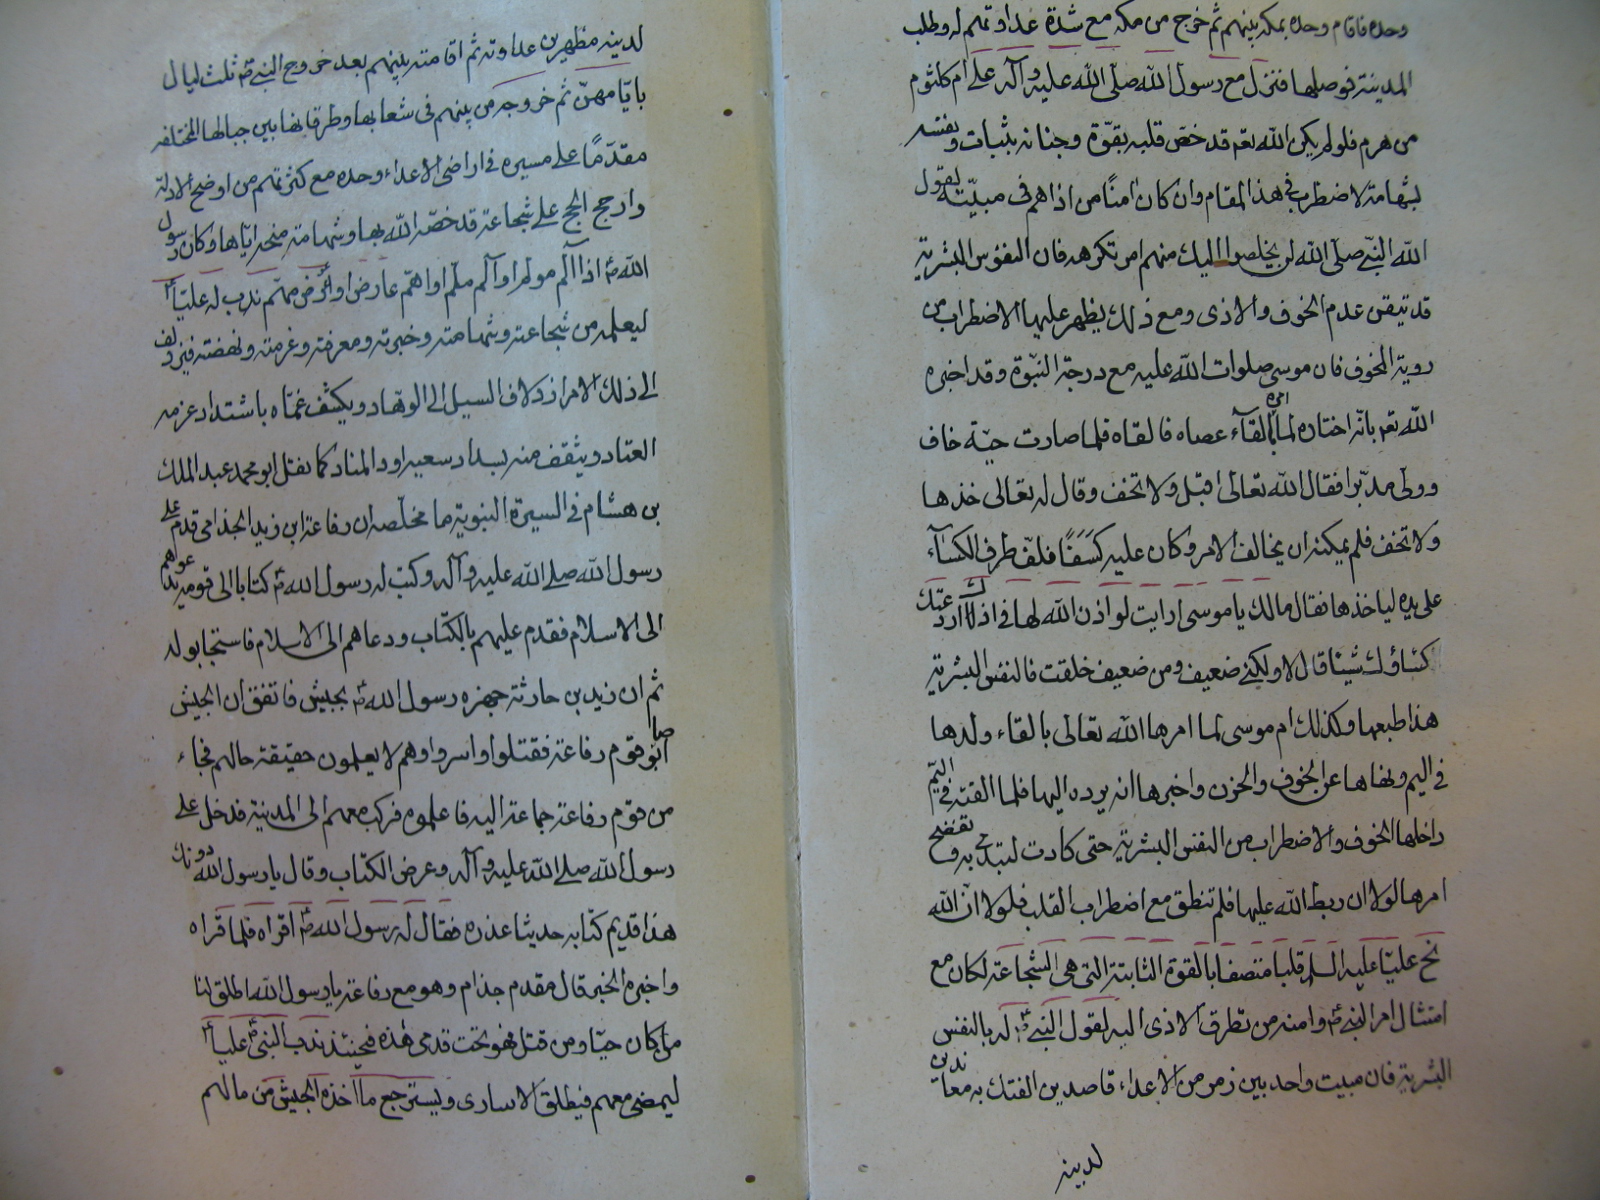 وحده فاقام وحده بمكه بينهم ثم خرج من مكه مع شدة عداوتهم له وطلب
المدينة فوصلها فنزل مع رسول الله صلى الله عليه وآله على ام كلثوم
من هرم فلو لم يكن الله تعه قد خص قلبه بقوة وجنانه بثبات ونفسه
بشهامة لاضطرب في هذا المقام وان كان امنا من اذاهم في مبيته لقول
الله النبي صلى الله لن يخلصوا اليك منهم امر تكرهه فان النفوس البشرية
قد تيقن عدم الخوف والاذى ومع ذلك يظهر عليها الاضطراب من
روية المخوف فان موسى صلوات الله عليه مع درجة النبوة وقد اخبره
الله تعه بانه اختاره لما امره بالقآء عصاه فالقاه فلما صارت حية خاف
وولى مدبرا فقال الله تعالى اقبل ولا تخف وقال له تعالى خذها
ولا تخف فلم يمكنه ان يخالف الامر وكان عليه كسَفًا فلف طرف الكسآء
على يده لياخذها فقال مالك يا موسى ارايت لو اذن الله لها في اذاك اردّ عنك
كساؤك شيئا قال لا ولكني ضعيف ومن ضعيف خلقت فالنفس البشرية
هذا طبعها وكذلك ام موسى لما امرها الله تعالى بالقاء ولدها
في اليم ونهاها عن الخوف والحزن واخبرها انه يرده اليها فلما القته في اليمّ
داخلها الخوف والاضطراب من النفس البشرية حتى كادت لتبدى به وتفضح
امرها لولا ان ربط الله عليها فلم تنطق مع اضطراب القلب فلولا ان الله
منح عليّا عليه السلم قلبا متصفا بالقوة الثابتة التى هى الشجاعة لكان مع
امتثال امر النبي وامنه من تطرق الاذى اليه لقول النبي له بالنفس
البشرية فان مبيت واحد بين زمر من الاعداء قاصدين الفتك به معاندين
لدينه
لدينه مظهرين عداوته ثم اقامته بينهم بعد خروج النبي ثلث ليال
بايّامهنّ ثم خروجه من بينهم في شعابها وطرقاتها بين جبالها المختلفه
مقدّمًا على مسيره في اراضى الاعداء وحده مع كثرتهم من اوضح الادلة
وارجح الحجج على شجاعة قد خصّه الله بها وشهامة منحه ايّاها وكان رسول
الله اذا آلم مولم او آلم ملم او اهم عارض او عرض مهم ندب له عليّا
ليعلمه من شجاعته وشهامته وخبرته ومعرفته وعزمته ونهضته فيزدلف
الى ذلك الامر ازدلاف السيل الى الوهاد ويكشف غمّاه باشتداد عزمه
العتاد ويثقف منه بسداد سعيه اود المناد كما نقل ابو محمد عبد الملك
بن هشام في السيرة النبوية ما مخلّصه ان رفاعة ابن زيد الجذامى قدم على
رسول الله صلى الله عليه وآله وكتب له رسول الله كتابا الى قومه يدعوهم
الى الاسلام فقدم عليهم بالكتاب ودعاهم الى الاسلام فاستجابو له
ثم ان زيد بن حارثة جهزه رسول الله بجيش فاتفق ان الجيش
اصابو قوم رفاعة فقتلوا واسروا وهم لا يعلمون حقيقة حالهم فجاء
من قوم رفاعة جماعة اليه فاعلموه فركب معهم الى المدينة فدخل على
رسول الله صلى الله عليه وآله وعرض الكتاب وقال يا رسول الله دونك
هذا قديم كتابه حديثا عذره فقال له رسول الله اقراه فلما قراه
واخبره الخبر قال مقدم جذام وهو مع رفاعة يا رسول الله اطلق لنا
من كان حيّا ومن قتل فهو تحت قدمى هذه فحينئذ ندب النبي عليا
ليمضى معهم فيطلق الاسارى ويسترجع ما اخذه الجيش من مالهم